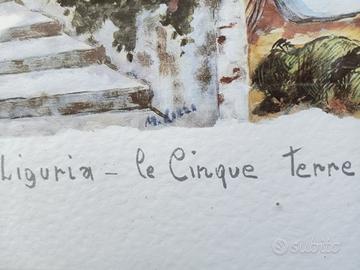 Liguria - le Cinque terre
subito